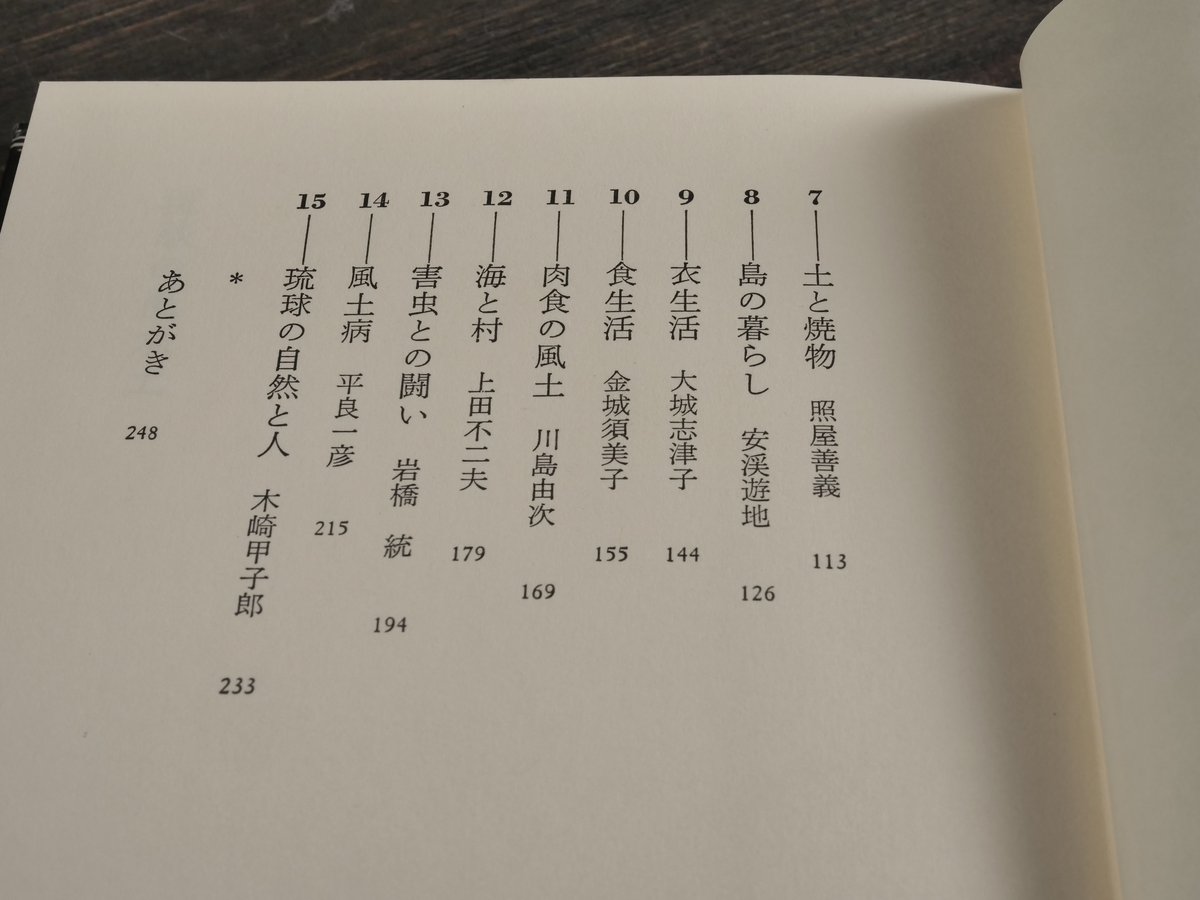 7——土と焼物 照屋善義 113
8——島の暮らし 安渓遊地 126
9——衣生活 大城志津子 144
10——食生活 金城須美子 155
11——肉食の風土 川島由次 169
12——海と村 上田不二夫 179
13——害虫との闘い 岩橋 統 194
14——風土病 平良一彦 215
15——琉球の自然と人 木崎甲子郎 233
*
あとがき 248